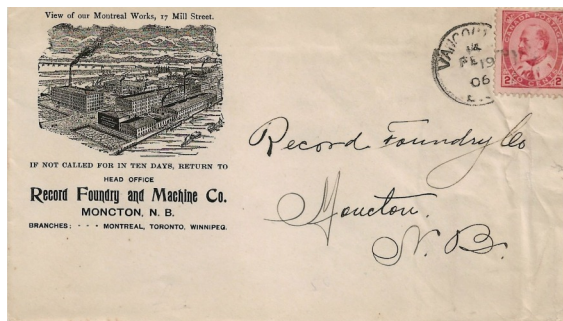 View of our Montreal Works, 17 Mill Street.
IF NOT CALLED FOR IN TEN DAYS, RETURN TO
HEAD OFFICE
Record Foundry and Machine Co.
MONCTON, N. B.
BRANCHES: - - - MONTREAL, TORONTO, WINNIPEG.
14
FE 19
06
2 2
Record Foundry Co
Moncton.
N. B.